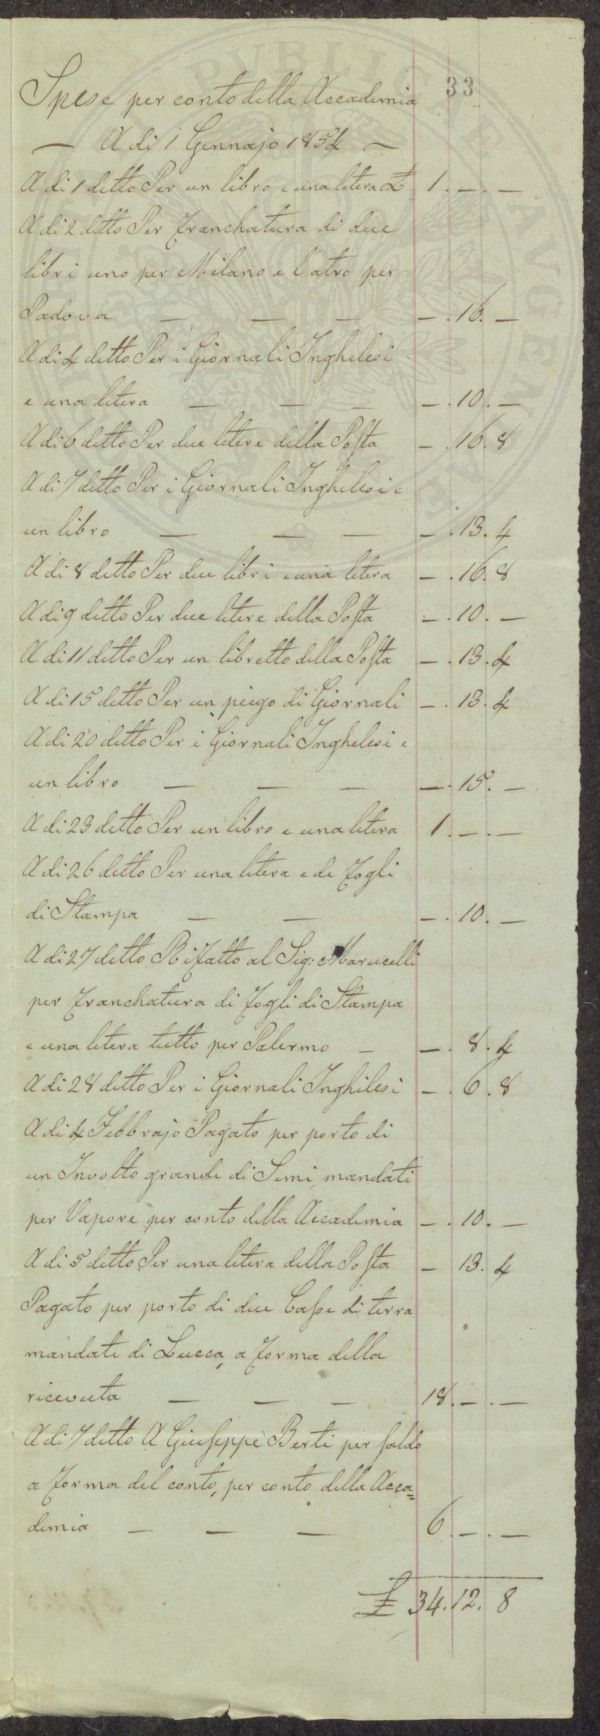 33
Spese per conto della Accademia
— A di 1 Gennajo 1854 —
A di 1 detto Per un libro e una litera £ 1 . — . —
A di 2 detto Per Franchatura di due
libri uno per Milano e l'atro per
Padova — — — — . 16 . —
A di 4 detto Per i Giornali Inghelesi
e una litera — — — — . 10 . —
A di 6 detto Per due litere della Posta — . 16 . 8
A di 7 detto Per i Giornali Inghelesi e
un libro — — — — . 13 . 4
A di 8 detto Per due libri e una litera — . 16 . 8
A di 9 detto Per due litere della Posta — . 10 . —
A di 11 detto Per un libretto della Posta — . 13 . 4
A di 15 detto Per un piego di Giornali — . 13 . 4
A di 20 detto Per i Giornali Inghelesi e
un libro — — — — . 15 . —
A di 23 detto Per un libro e una litera 1 . — . —
A di 26 detto Per una litera e de Fogli
di Stampa — — — . 10 . —
A di 27 detto Rifatto al Sig: Marucelli
per Franchatura di Fogli di Stampa
e una litera tutto per Palermo — — . 8 . 4
A di 28 detto Per i Giornali Inghilesi — . 6 . 8
A di 4 Febbrajo Pagato per porto di
un Involto grande di Semi, mandati
per Vapore per conto della Accademia — . 10 . —
A di 5 detto Per una litera della Posta — 13 . 4
Pagato per porto di due Casse di terra
mandate di Lucca, a Forma della
ricevuta — — — 18 . — . —
A di 7 detto A Giuseppe Berti per saldo
a Forma del conto, per conto della Acca=
demia — — — 6 . — . —
£ 34 . 12 . 8